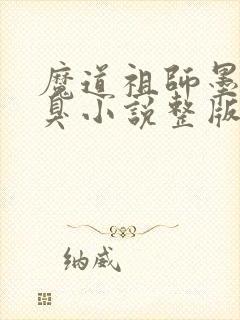 魔道祖師墨
臭小説整版
纳威